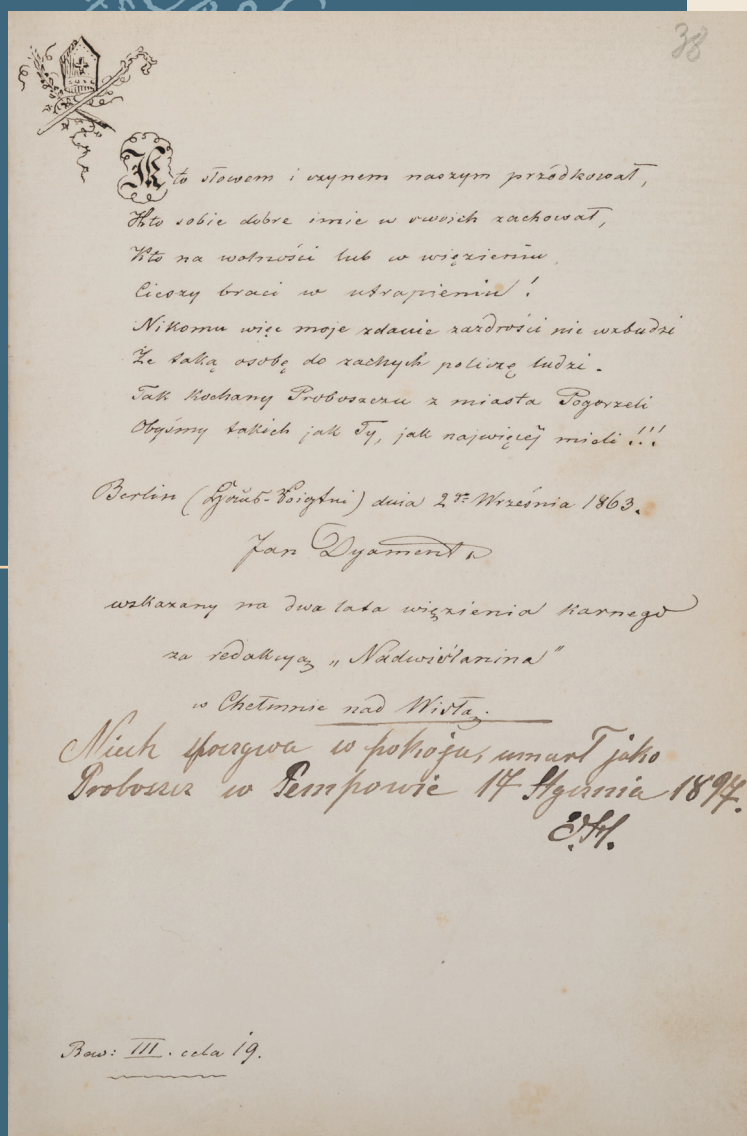 38
Kto słowem i czynem naszym przódkował,
Kto sobie dobre imie w swoich zachował,
Kto na wolności lub w więzieniu,
Cieszy braci w utrapieniu!
Nikomu więc moje zdanie zazdrości nie wzbudzi
Że taką osobę do zacnych policzę ludzi.
Tak Kochany Proboszczu z miasta Pogorzeli
Obyśmy takich jak Ty, jak najwięcéj mieli!!!
Berlin (Haus-Voigtei) dnia 2go Września 1863.
Jan Dyament
wskazany na dwa lata więzienia karnego
za redakcyą „Nadwiślanina"
w Chełmnie nad Wisłą.
Niech spoczywa w pokoju, umarł jako
Proboszcz w Pempowie 17 Stycznia 1897.
Baw: III. cela 19.